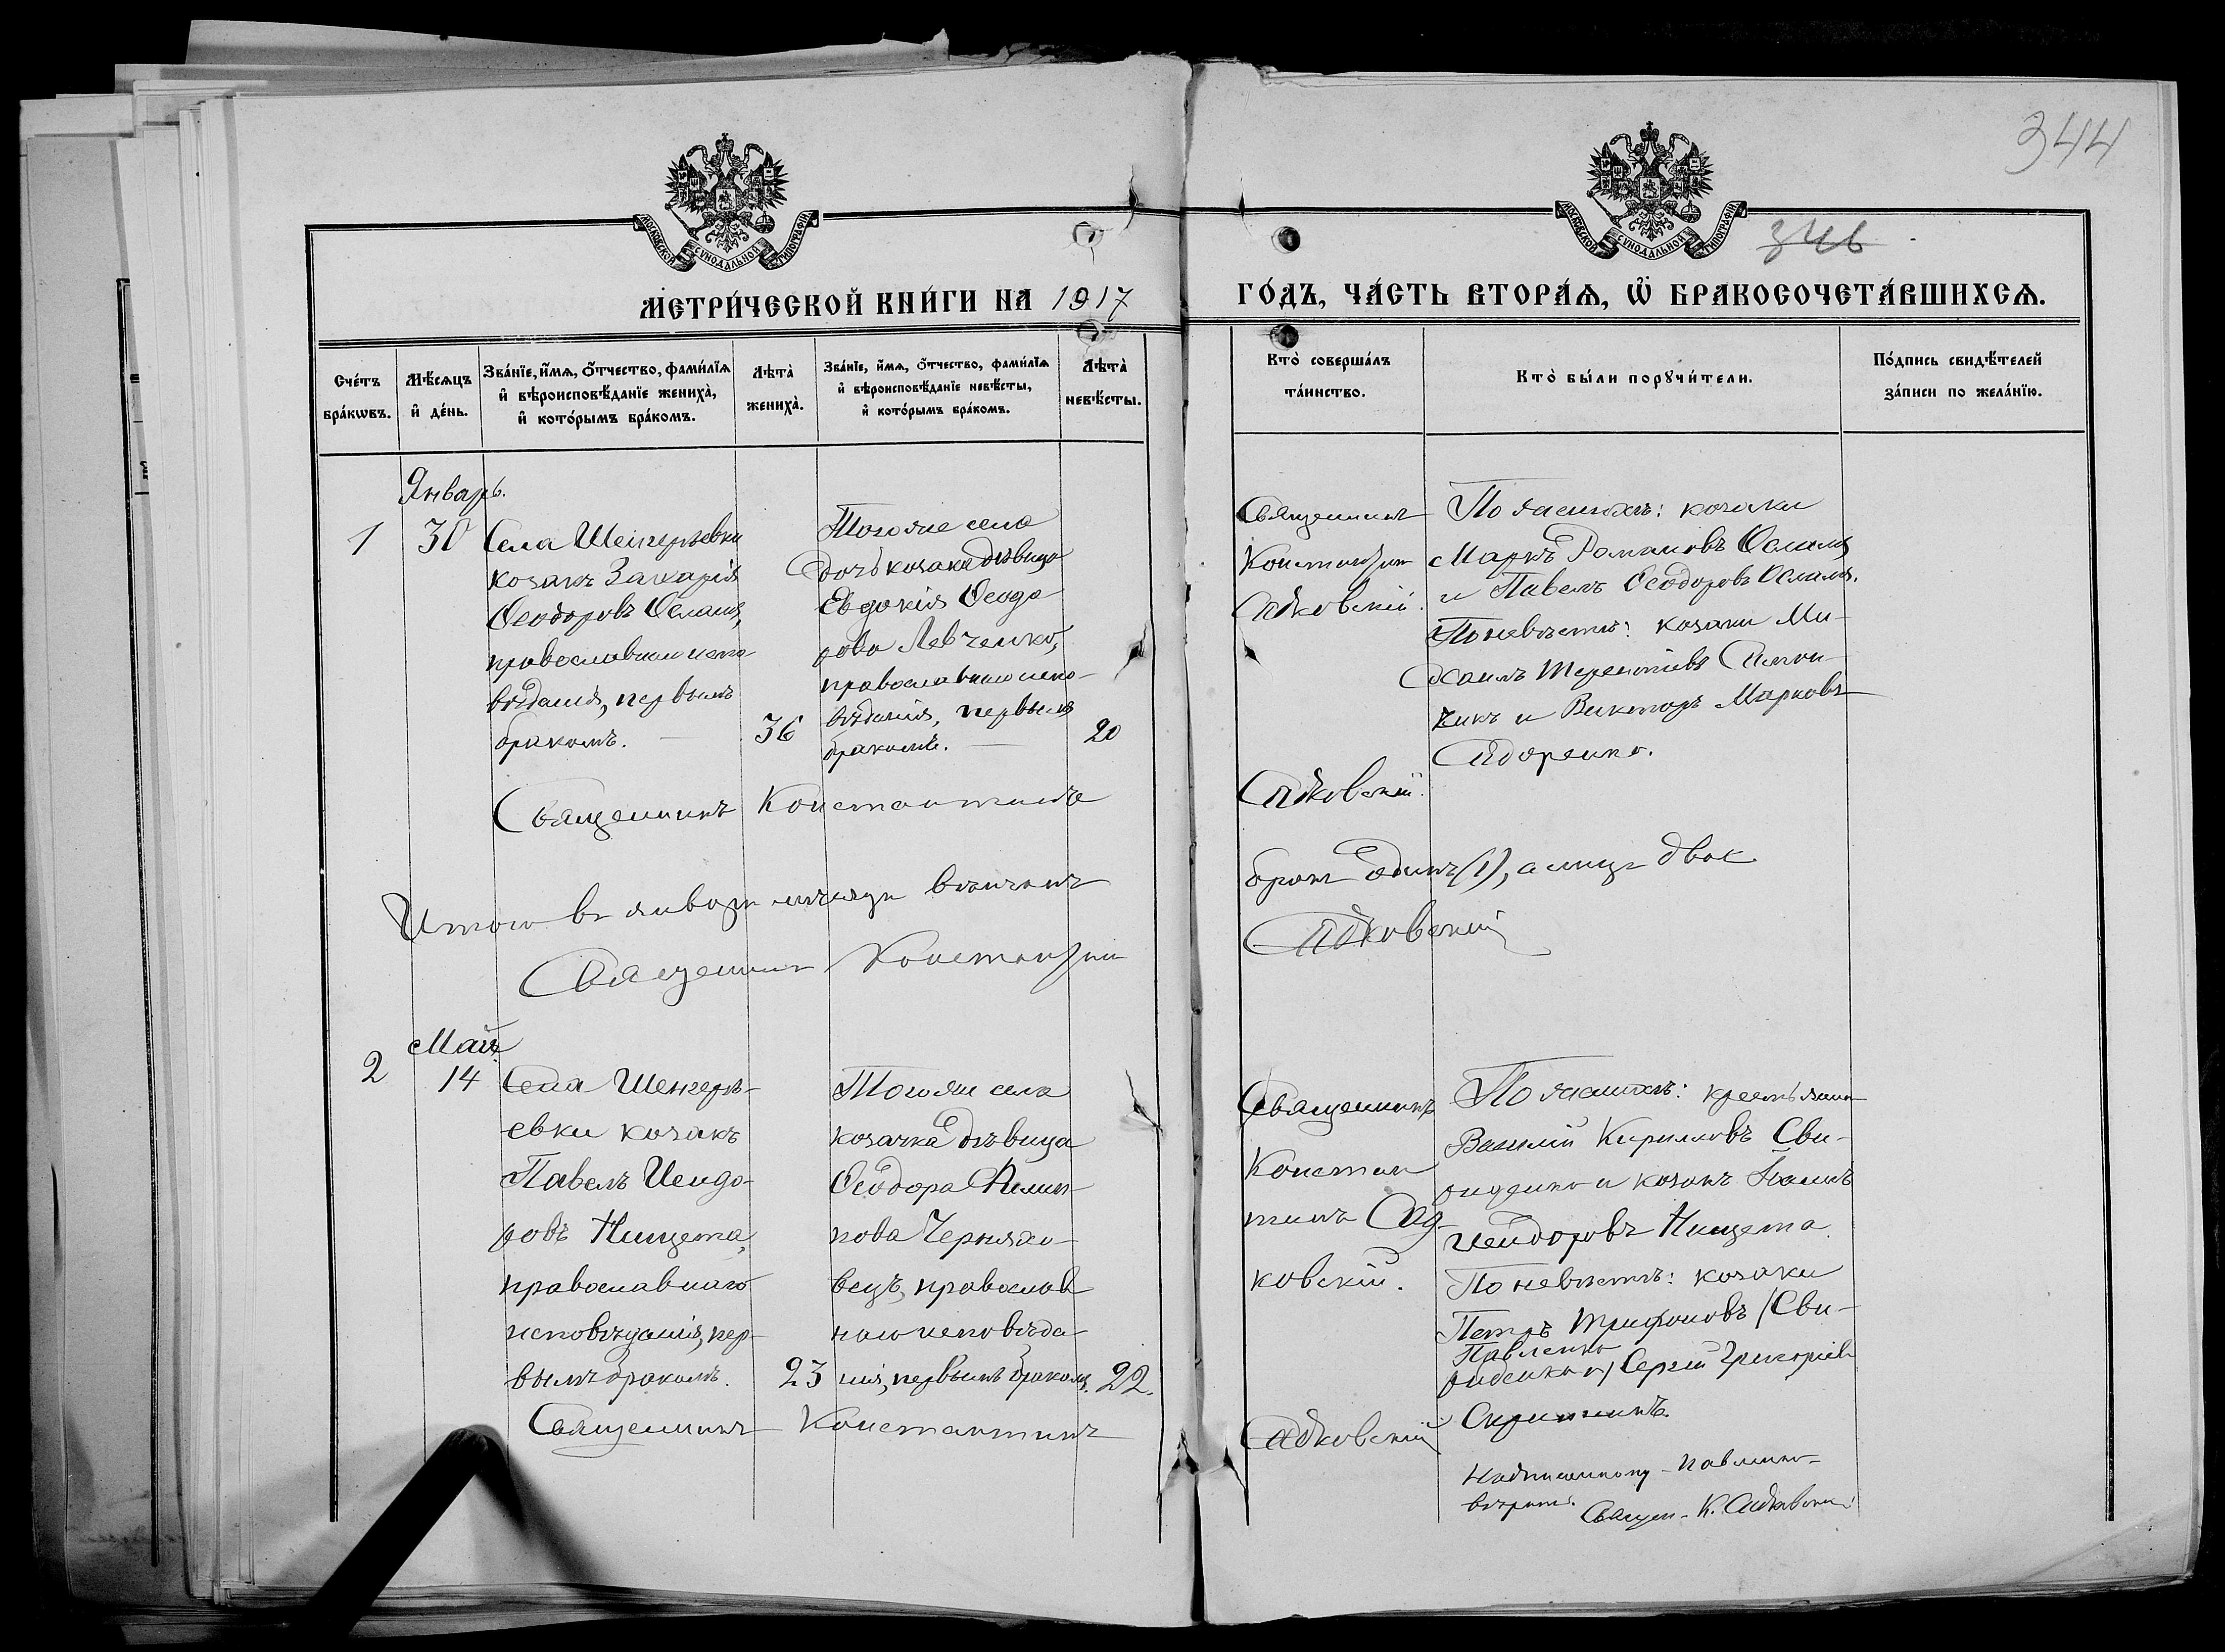 344
346
МОСКОВСКОЙ СѴНОДАЛЬНОЙ ТИПОГРАФІИ
МОСКОВСКОЙ СѴНОДАЛЬНОЙ ТИПОГРАФІИ
МЕТРИ́ЧЕСКОЙ КНИ́ГИ НА 1917
ГО́ДЪ, ЧА́СТЬ ВТОРА́Ѧ, Ѡ҆ БРАКОСОЧЕТА́ВШИХСѦ.
Сче́тъ
бра́кѡвъ.
Мѣ́сѧцъ
и҆ де́нь.
Зва́нїе, и҆́мѧ, ѻ҆́тчество, фами́лїѧ
и҆ вѣроисповѣ́данїе жениха̀,
и҆ кото́рымъ бра́комъ.
Лѣта̀
жениха̀.
Зва́нїе, и҆́мѧ, ѻ҆́тчество, фами́лїѧ
и҆ вѣроисповѣ́данїе невѣ́сты,
и҆ кото́рымъ бра́комъ.
Лѣта̀
невѣ́сты.
Кто̀ соверша́лъ
та́инство.
Кто̀ бы́ли порꙋчи́тели.
По́дпись свидѣ́телей
за́писи по жела́нїю.
Январь.
1
30
Села Шенгерѣевки
козакъ Захарія
Ѳеодоровъ Осламъ,
православнаго испо
вѣданія, первымъ
бракомъ.
36
Того же села
дочь козака девица
Евдокія Ѳеодо
рова Левченко,
православнаго испо-
вѣданія, первымъ
бракомъ.
20
Священникъ
Константинъ
Садковскій.
По женихѣ: козаки
Маркъ Романовъ Осламъ
и Павелъ Ѳеодоровъ Осламъ.
По невѣстѣ: козаки Ми-
хаилъ Терентіевъ
и Викторъ Марковъ
Сидоренко.
Священникъ Константинъ Садковскій.
Итого въ январѣ мѣсяцѣ вѣнчанъ бракъ одинъ (1), а лицъ двое
Священникъ Константинъ Садковскій
Май
2
14
Села Шенгерѣ-
евки козакъ
Павелъ Исидо-
ровъ Нищета,
православнаго
исповѣданія, пер-
вымъ бракомъ.
23
Того же села
козачка дѣвица
Ѳеодора Филип-
пова Черняхо-
вецъ, православ
наго исповѣда-
нія, первымъ бракомъ.
22.
Священникъ
Констан
тинъ Сад-
ковскій.
По женихѣ: крестьянинъ
Василій Кириловъ Сви-
риденко и козакъ Іоаннъ
Исидоровъ Нищета.
По невѣстѣ: козаки
Петръ Трифоновъ (Сви-
Павленко
риденко и) Сергій Григоріевъ
Скрипникъ.
Священникъ Константинъ Садковскій
Надписанному - Павленко -
вѣрить.
Священ. К. Садковскій